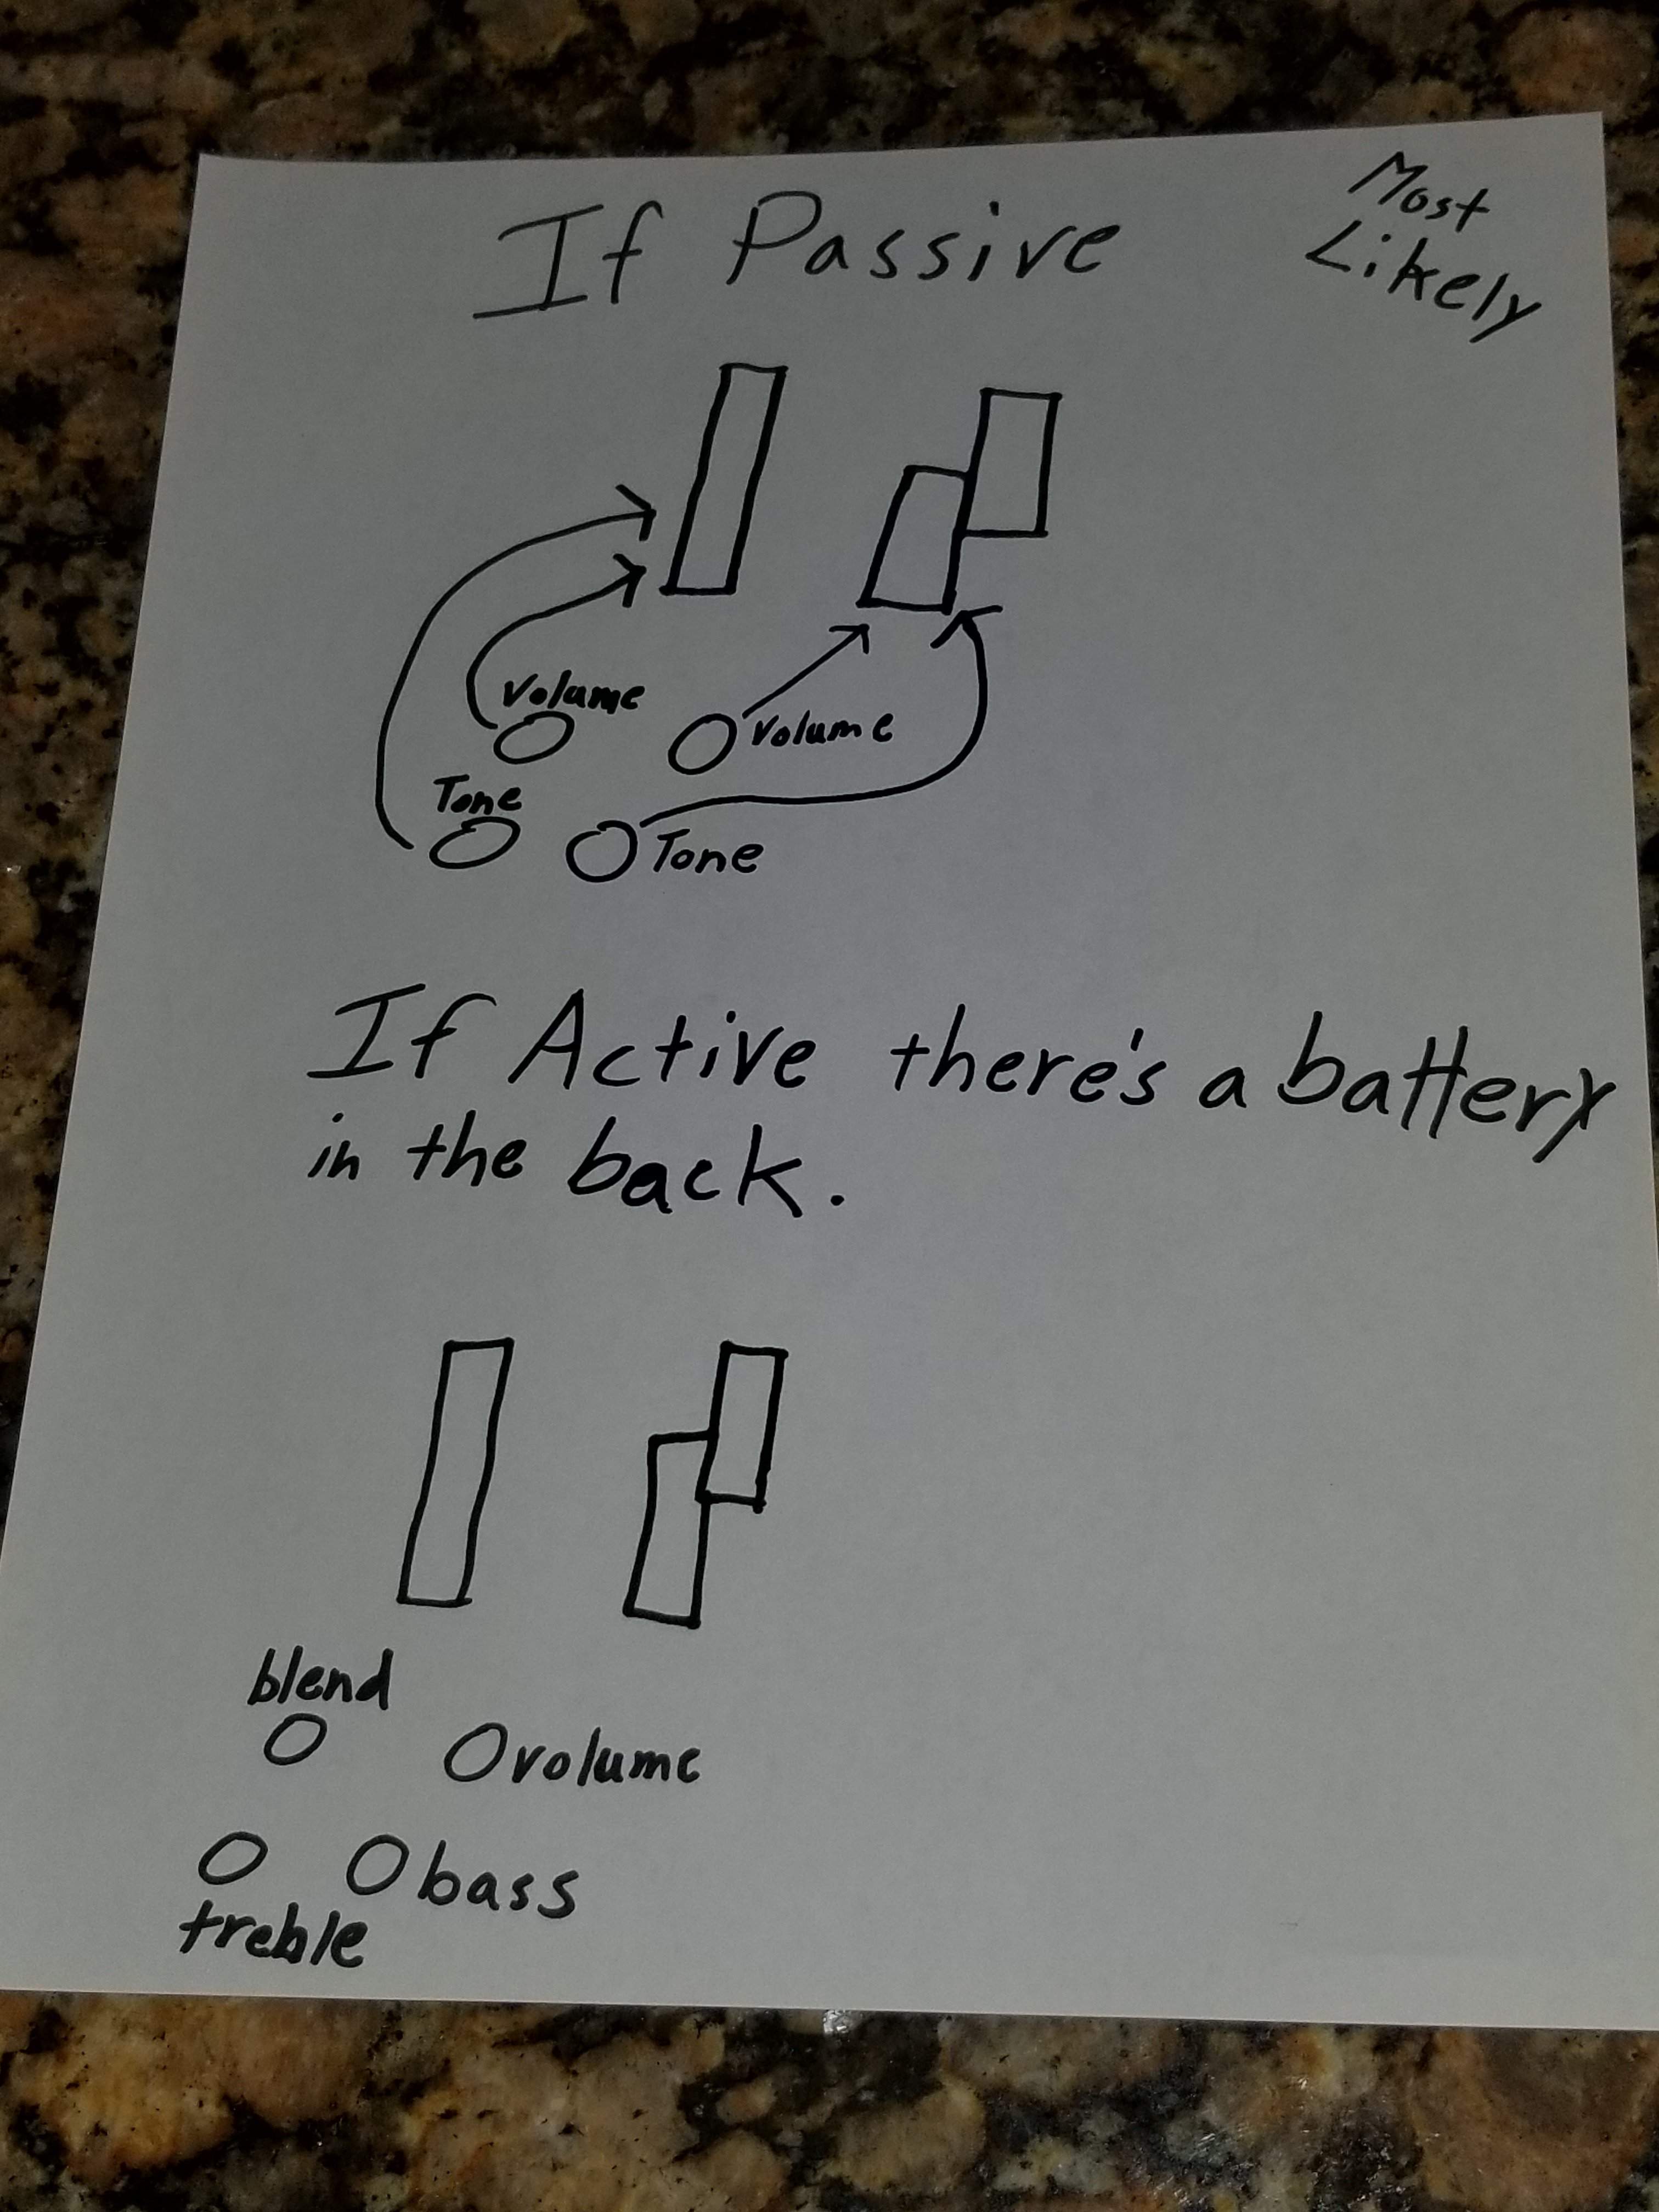 If Passive
Most
Likely
Volume
Volume
Tone
Tone
If Active there's a battery
in the back.
blend
volume
bass
treble